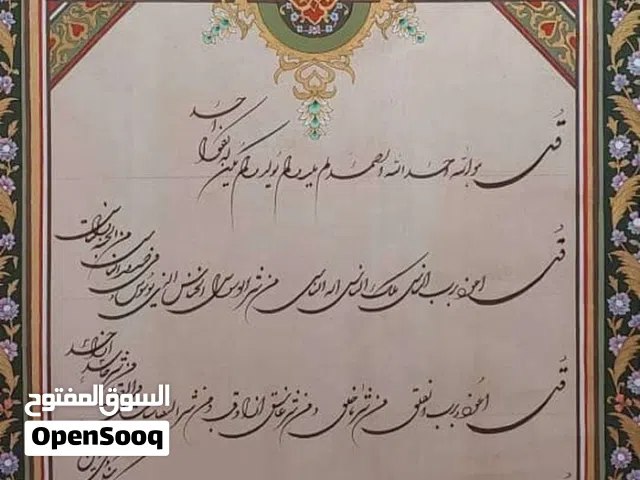 قل هو الله احد الله الصمد لم یلد و لم یولد و لم یکن له کفوا احد
قل اعوذ برب الناس ملک الناس اله الناس من شر الوسواس الخناس الذی یوسوس فی صدور الناس من الجنة و الناس
قل اعوذ برب الفلق من شر ما خلق و من شر غاسق اذا وقب و من شر النفاثات
السوق المفتوح
OpenSooq